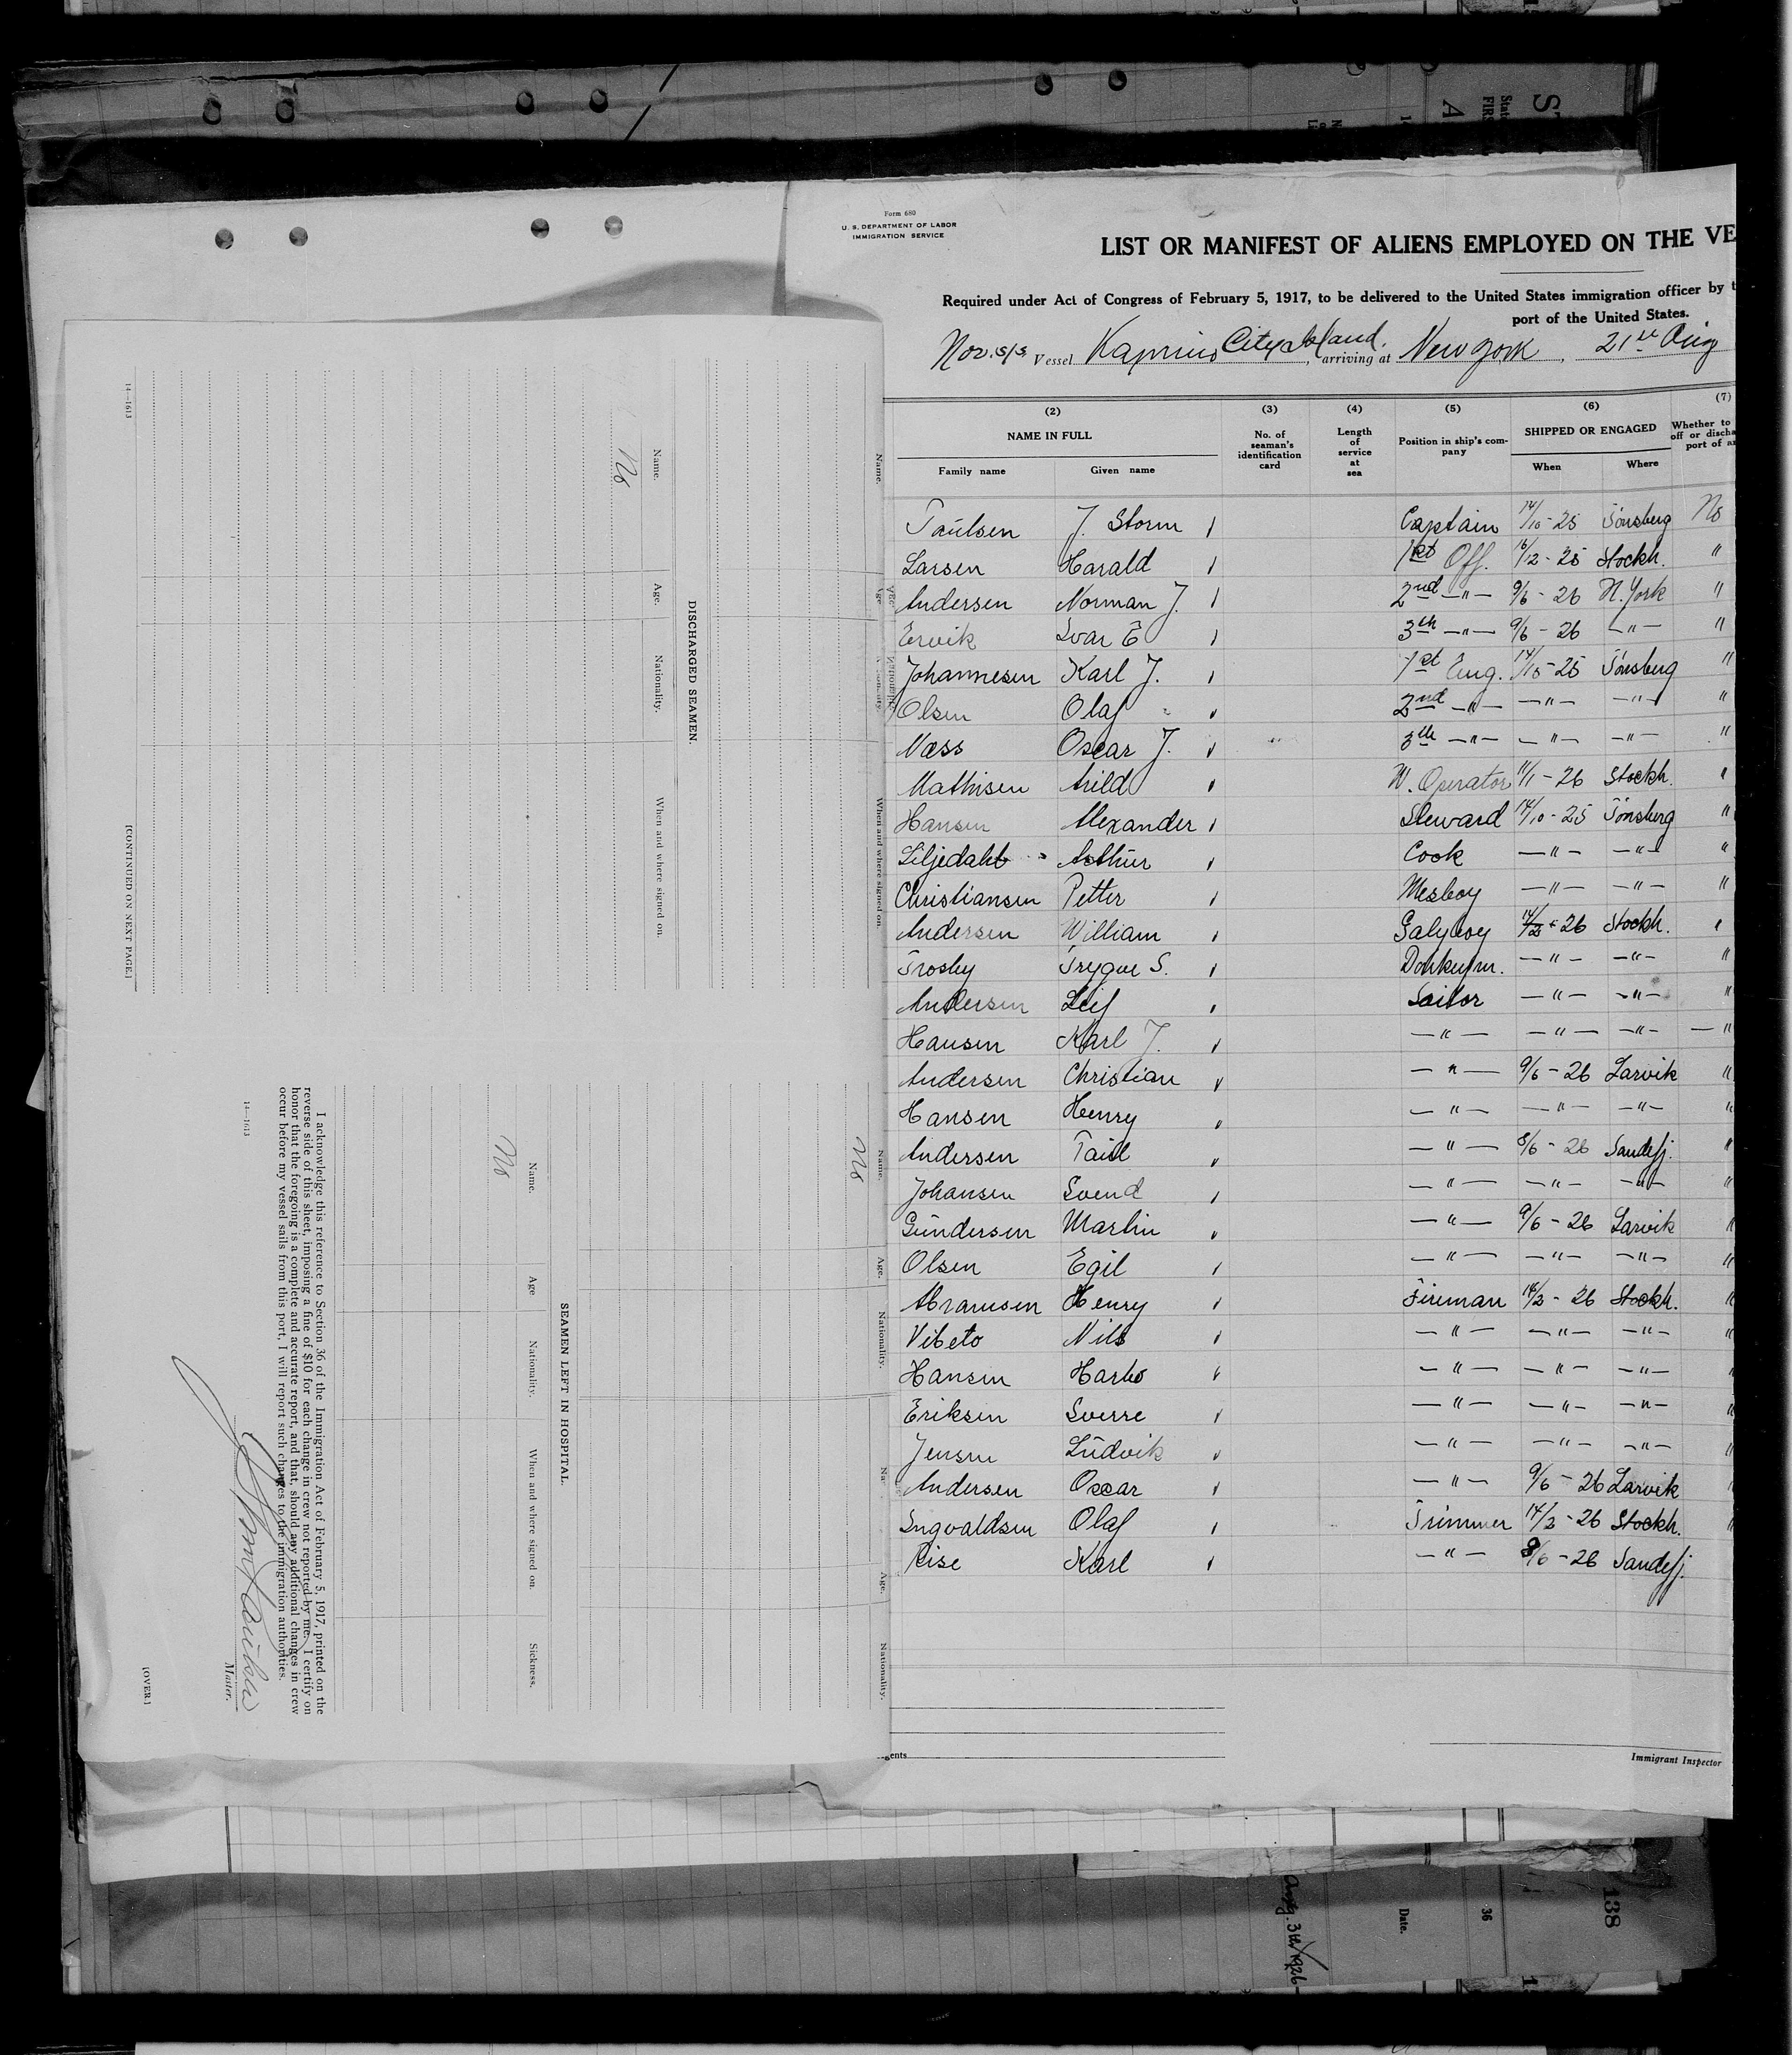 Form 680
U. S. DEPARTMENT OF LABOR
IMMIGRATION SERVICE
LIST OR MANIFEST OF ALIENS EMPLOYED ON THE VE
Required under Act of Congress of February 5, 1917, to be delivered to the United States immigration officer by t
port of the United States.
Nor. s/s Vessel City Island, arriving at New York, 21st Aug
(2) (3) (4) (5) (6) (7)
NAME IN FULL No. of seaman's identification card Length of service at sea Position in ship's company SHIPPED OR ENGAGED Whether to
off or discha
port of a
Family name Given name When Where
Paulsen J. Storm Captain 14/10-25 Tönsberg No
Larsen Harald 1st Off. 16/12-25 Stockh. "
Andersen Norman J. 2nd -"- 9/6-26 N. York "
Ervik Ivar E 3th -"- 9/6-26 -"- "
Johannesen Karl J. 1st Eng. 14/10-25 Tönsberg "
Olsen Olaf 2nd -"- -"- -"- "
Næss Oscar J. 3th -"- -"- -"- "
Mathisen Arild W. Operator 11/1-26 Stockh. "
Hansen Alexander Steward 14/10-25 Tönsberg "
Liljedahl Arthur Cook -"- -"- "
Christiansen Petter Mesboy -"- -"- "
Andersen William Galyboy 14/2-26 Stockh. "
Trosby Trygve S. Donkeym. -"- -"- "
Andersen Leif Sailor -"- -"- "
Hansen Karl J. -"- -"- -"- -"
Andersen Christian -"- 9/6-26 Larvik "
Hansen Henry -"- -"- -"- "
Andersen Paul -"- 8/6-26 Sandefj. "
Johansen Svend -"- -"- -"- "
Gundersen Martin -"- 9/6-26 Larvik "
Olsen Egil -"- -"- -"- "
Abramsen Henry Fireman 14/2-26 Stockh. "
Vibeto Nils -"- -"- -"- "
Hansen Harbo -"- -"- -"- "
Eriksen Sverre -"- -"- -"- "
Jensen Ludvik -"- -"- -"- "
Andersen Oscar -"- 9/6-26 Larvik "
Ingvaldsen Olaf Trimmer 14/2-26 Stockh. "
Riise Karl -"- 8/6-26 Sandefj.
Immigrant Inspector
gents
Name. Age. Nationality. When and where signed on.
DISCHARGED SEAMEN.
Name. Age. Nationality. When and where signed on.
No
14—1613
[CONTINUED ON NEXT PAGE.]
Name. Age. Nationality.
No
Age. Nationality.
SEAMEN LEFT IN HOSPITAL.
Name. Age Nationality. When and where signed on. Sickness.
No
I acknowledge this reference to Section 36 of the Immigration Act of February 5, 1917, printed on the
reverse side of this sheet, imposing a fine of $10 for each change in crew not reported by me. I certify on
honor that the foregoing is a complete and accurate report, and that, should any additional changes in crew
occur before my vessel sails from this port, I will report such changes to the immigration authorities.
J. Storm Paulsen
Master.
14—1613
[OVER]
Date.
36
138